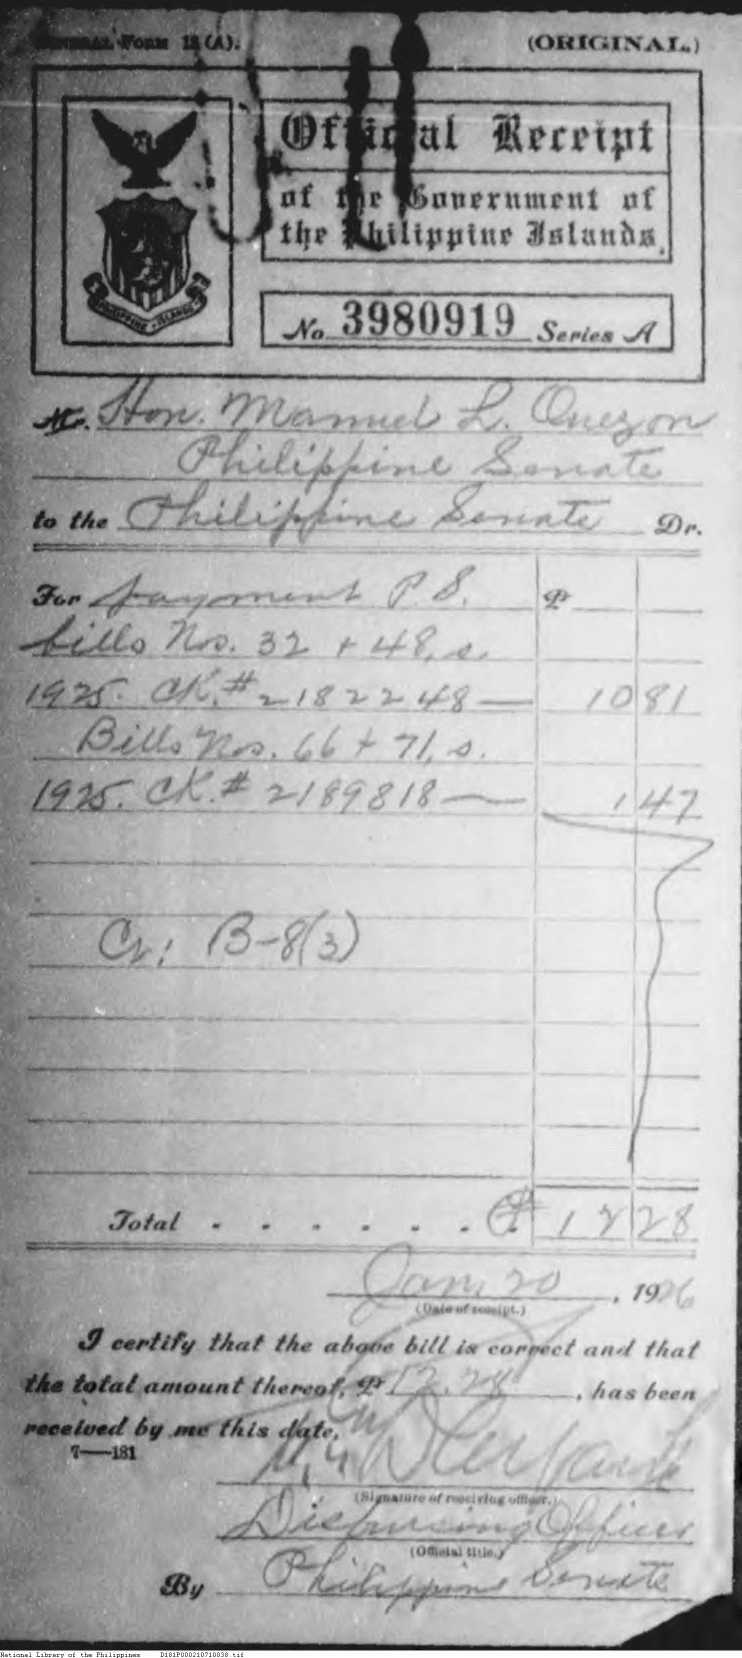 GENERAL FORM 13 (A).
(ORIGINAL.)
Official Receipt
of the Government of
the Philippine Islands.
PHILIPPINE ISLANDS
No. 3980919 Series A
M. Hon. Manuel L. Quezon
Philippine Senate
to the Philippine Senate Dr.
For payment P. S. ₱
bills Nos. 32 + 48, s.
1925. CK. # 2182248 — 10 81
Bills Nos. 66 + 71, s.
1925. CK. # 2189818 — 1 47
Cr: B-8(3)
Total . . . . . . ₱ 12 28
Jan. 20, 1926
(Date of receipt.)
I certify that the above bill is correct and that
the total amount thereof, ₱ 12.28, has been
received by me this date.
7—131
(Signature of receiving officer.)
Disbursing Officer
(Official title.)
By Philippine Senate
National Library of the Philippines D181P000210710038.tif